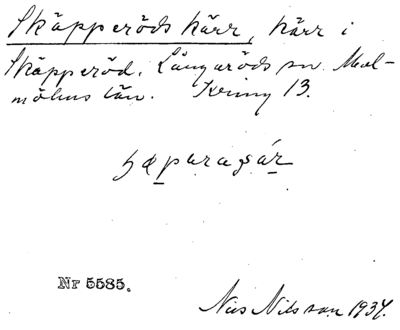 Skäpperöds kärr, kärr i
Skäpperöd. Långaröds sn. Mal-
möhus län. 13.
Nr 5585.
Nils Nilsson 1934.